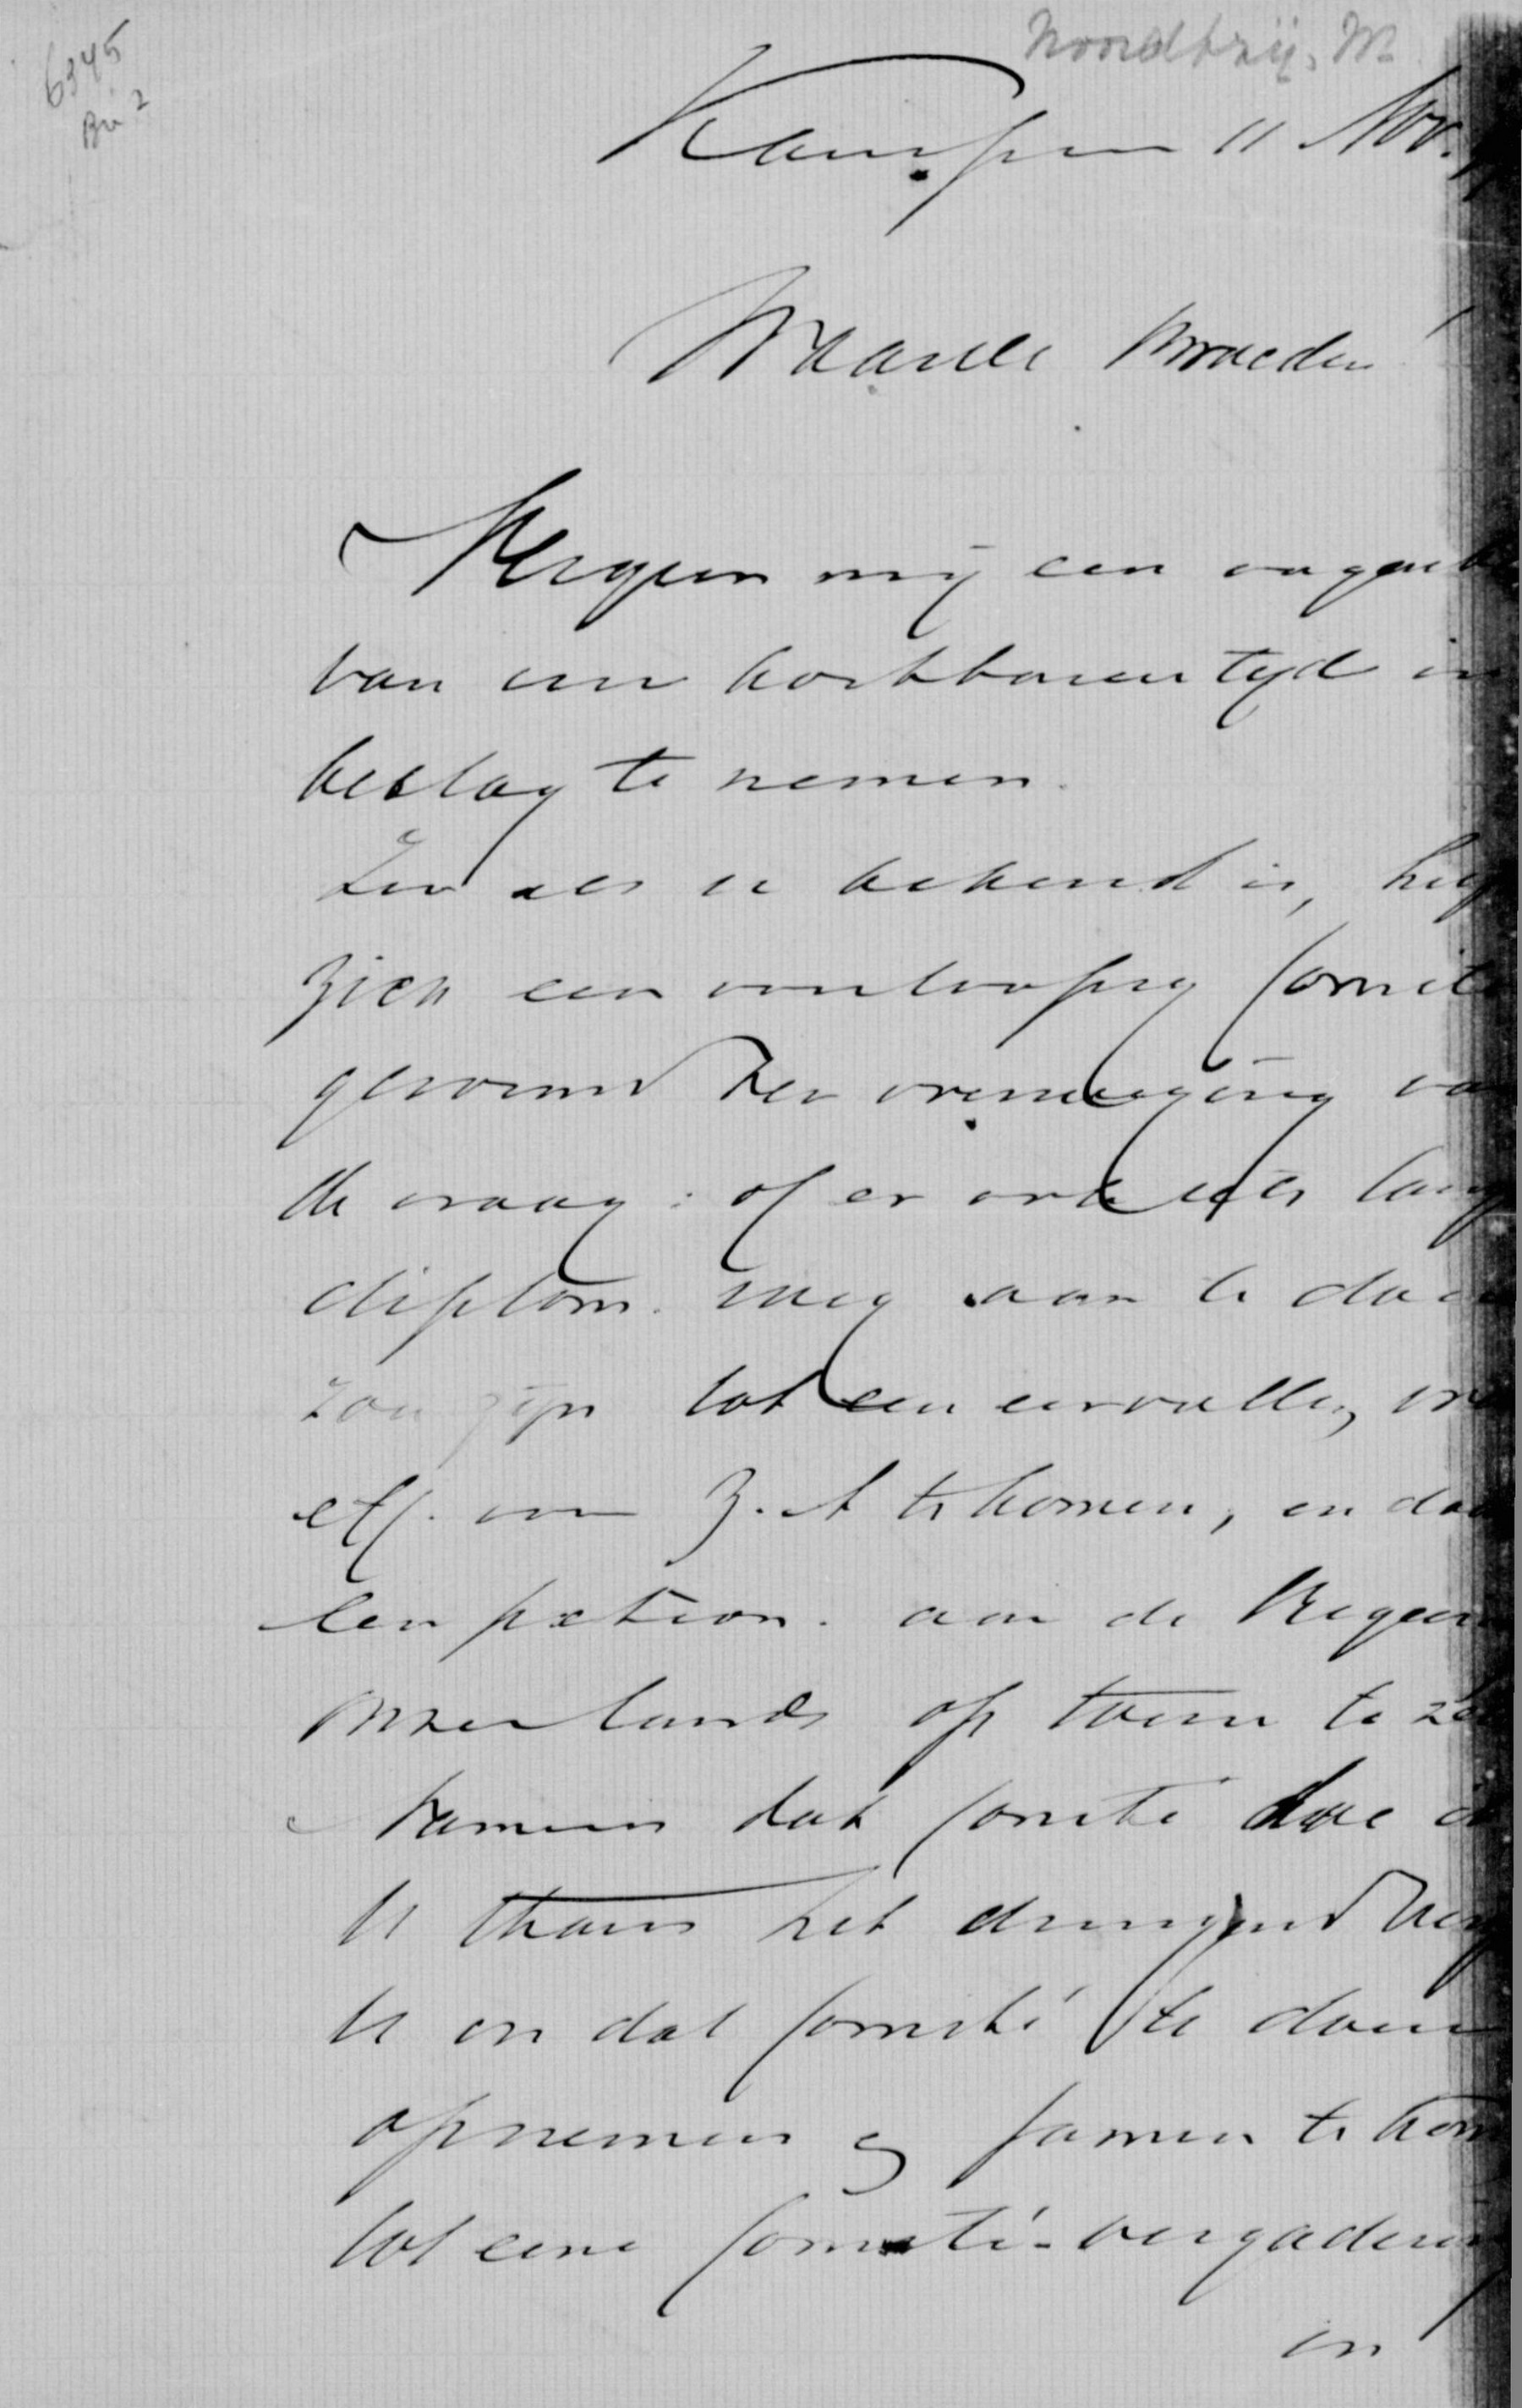 6345
Br 2
Noordtzij, M.
Kampen 11 Nov.
Waarde Broeder!
Vergun mij een oogenb
van uw kostbaren tijd in
beslag te nemen.
Zoo als u bekend is, heef
zich een voorloopig Comité
gevormd ter overweging va
de vraag: of er ook iets lang
diplom. weg aan te doen
zou zijn tot een eervollen vre
etc. voor Z. A te komen, en daa
een petition. aan de Regeer
onzer lands op touw te zet
Namens dat Comité doe ik
U thans het dringend verz
U in dat Comité te doen
opnemen & samen te kom
tot eene Comité-vergadering
in